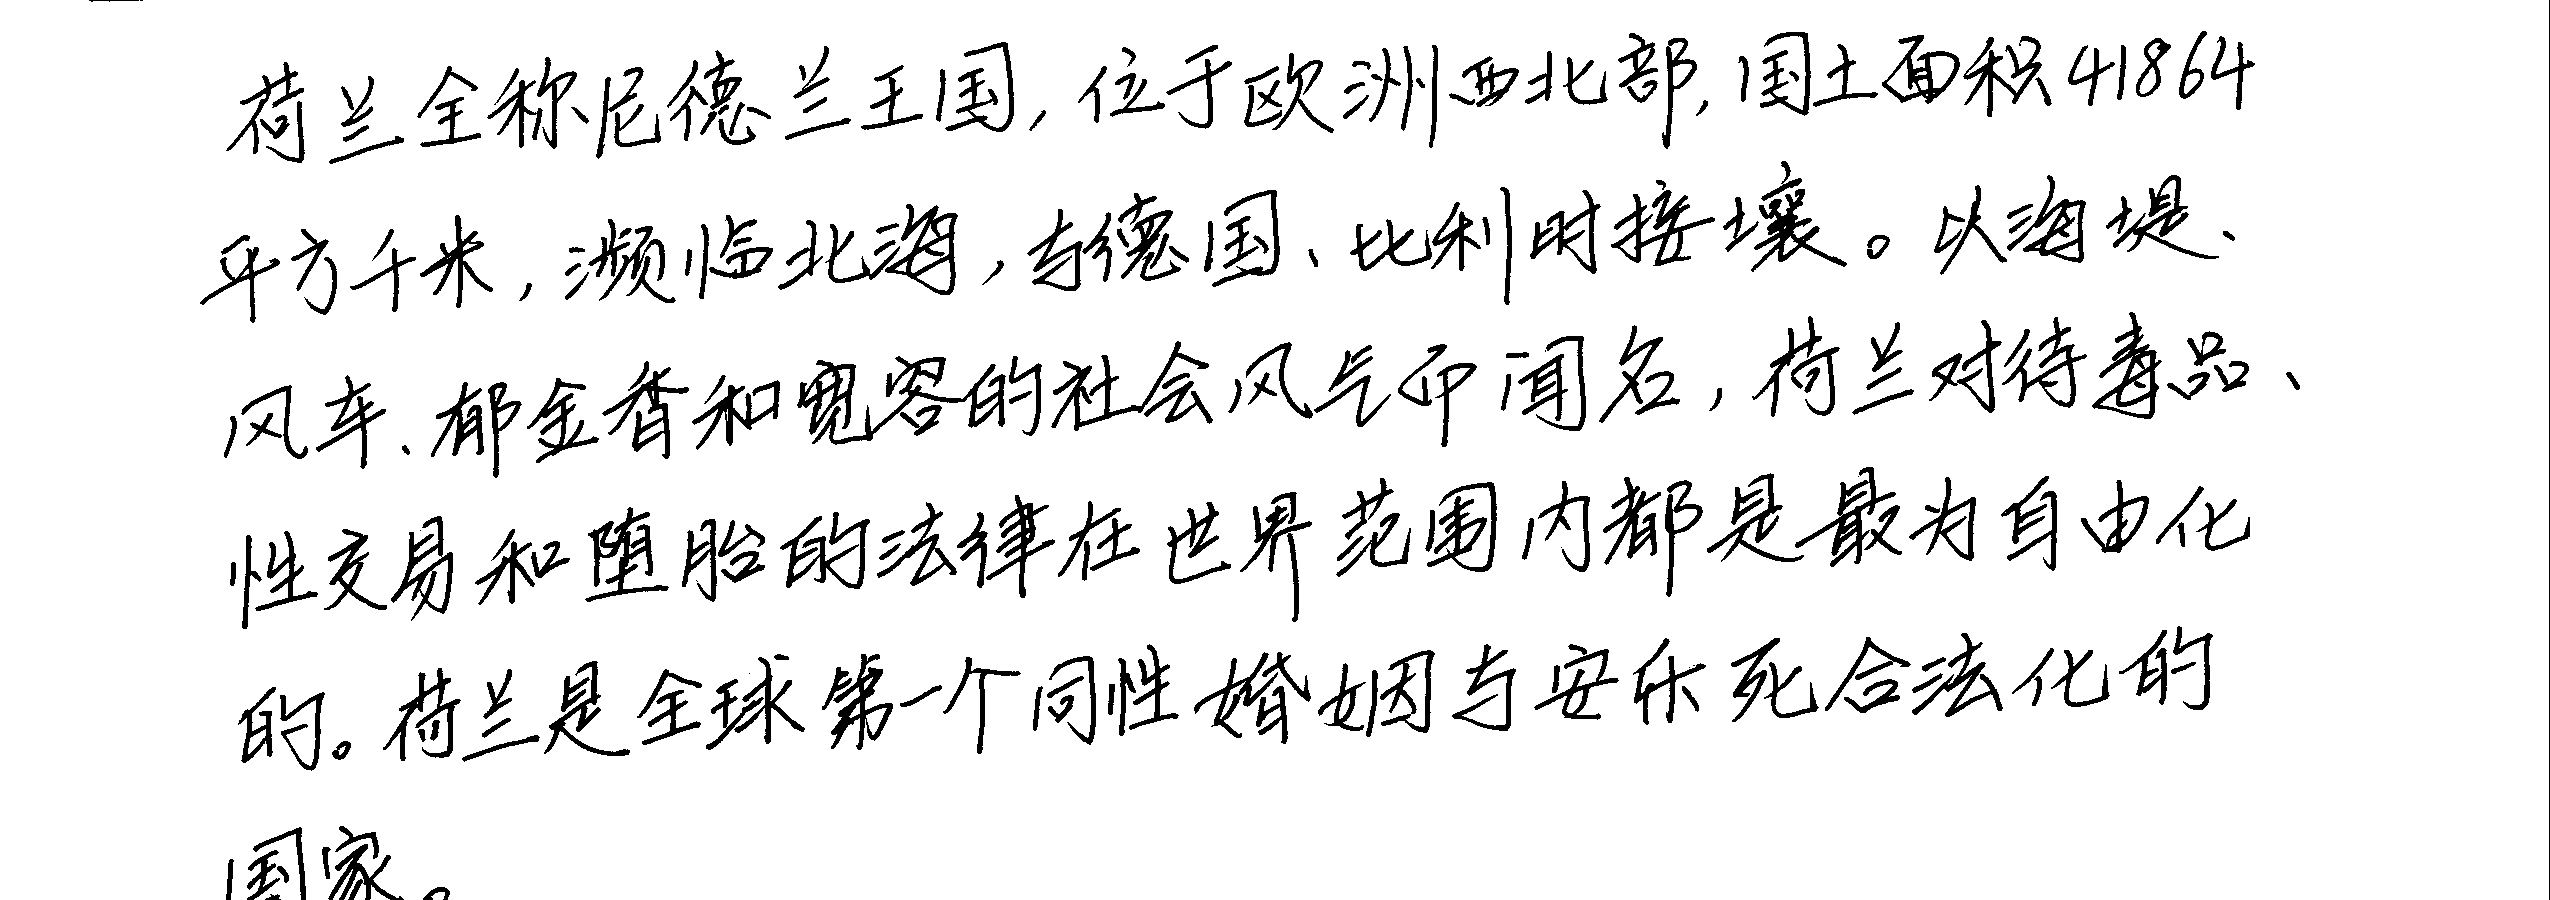 荷兰全称尼德兰王国,位于欧洲西北部,国土面积41864
平方千米,濒临北海,与德国、比利时接壤。以海堤、
风车、郁金香和宽容的社会风气而闻名,荷兰对待毒品、
性交易和堕胎的法律在世界范围内都是最为自由化
的。荷兰是全球第一个同性婚姻与安乐死合法化的
国家。